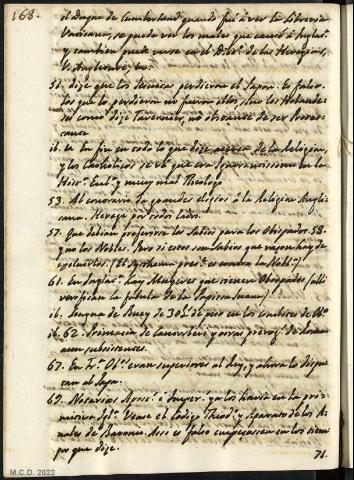 168.
el Duque de Cumberland quando fué á ver la Libreria
Vaticana, se puede ver los males que causó á Inglat.ª
y tambien puede verse en el Dicc.º de las Heregias,
51. dize que los Jesuitas perdieron el Japon. Es falso
los que lo perdieron no fueron ellos, sino los Holande-
ses como dize Tavernier, no obstante de ser Protes-
tante
ib. en fin en todo lo que dize acerca de la Religion,
y los Catholicos se ve que era ignorantissimo en la
Hist.ª Ecl.ª y muy mal Theologo
53. Al contrario da grandes elogios á la Religion Angli-
cana. Herege por todos lados.
57. Que debian preferirse los Sabios para los Obispados 58.
que los Nobles. Pero si estos son Sabios que razon hay de
excluirlos.
61. En Inglat.ª hay Mugeres que tienen Obispados (alli
verifican la fabula de la Papisa Juana)
ib. Lengua de Buey de 30 de peso en los
ib. 62. Primacia de Canterberi y otras prerog.s de Roma
aun subsistentes.
67. En Fr.ª Ob.s eran superiores al Rey, y ahora lo dispu-
tan al Papa.
69. Notarios Apost.s é Imper.s ya los havia en la pri-
mitiva Igl.ª Vease el Codigo Theod.º y Aparato de los A-
nales de Baronio. Assi es falso empezassen en los tiem-
pos que dize.
71.
M.C.D. 2022